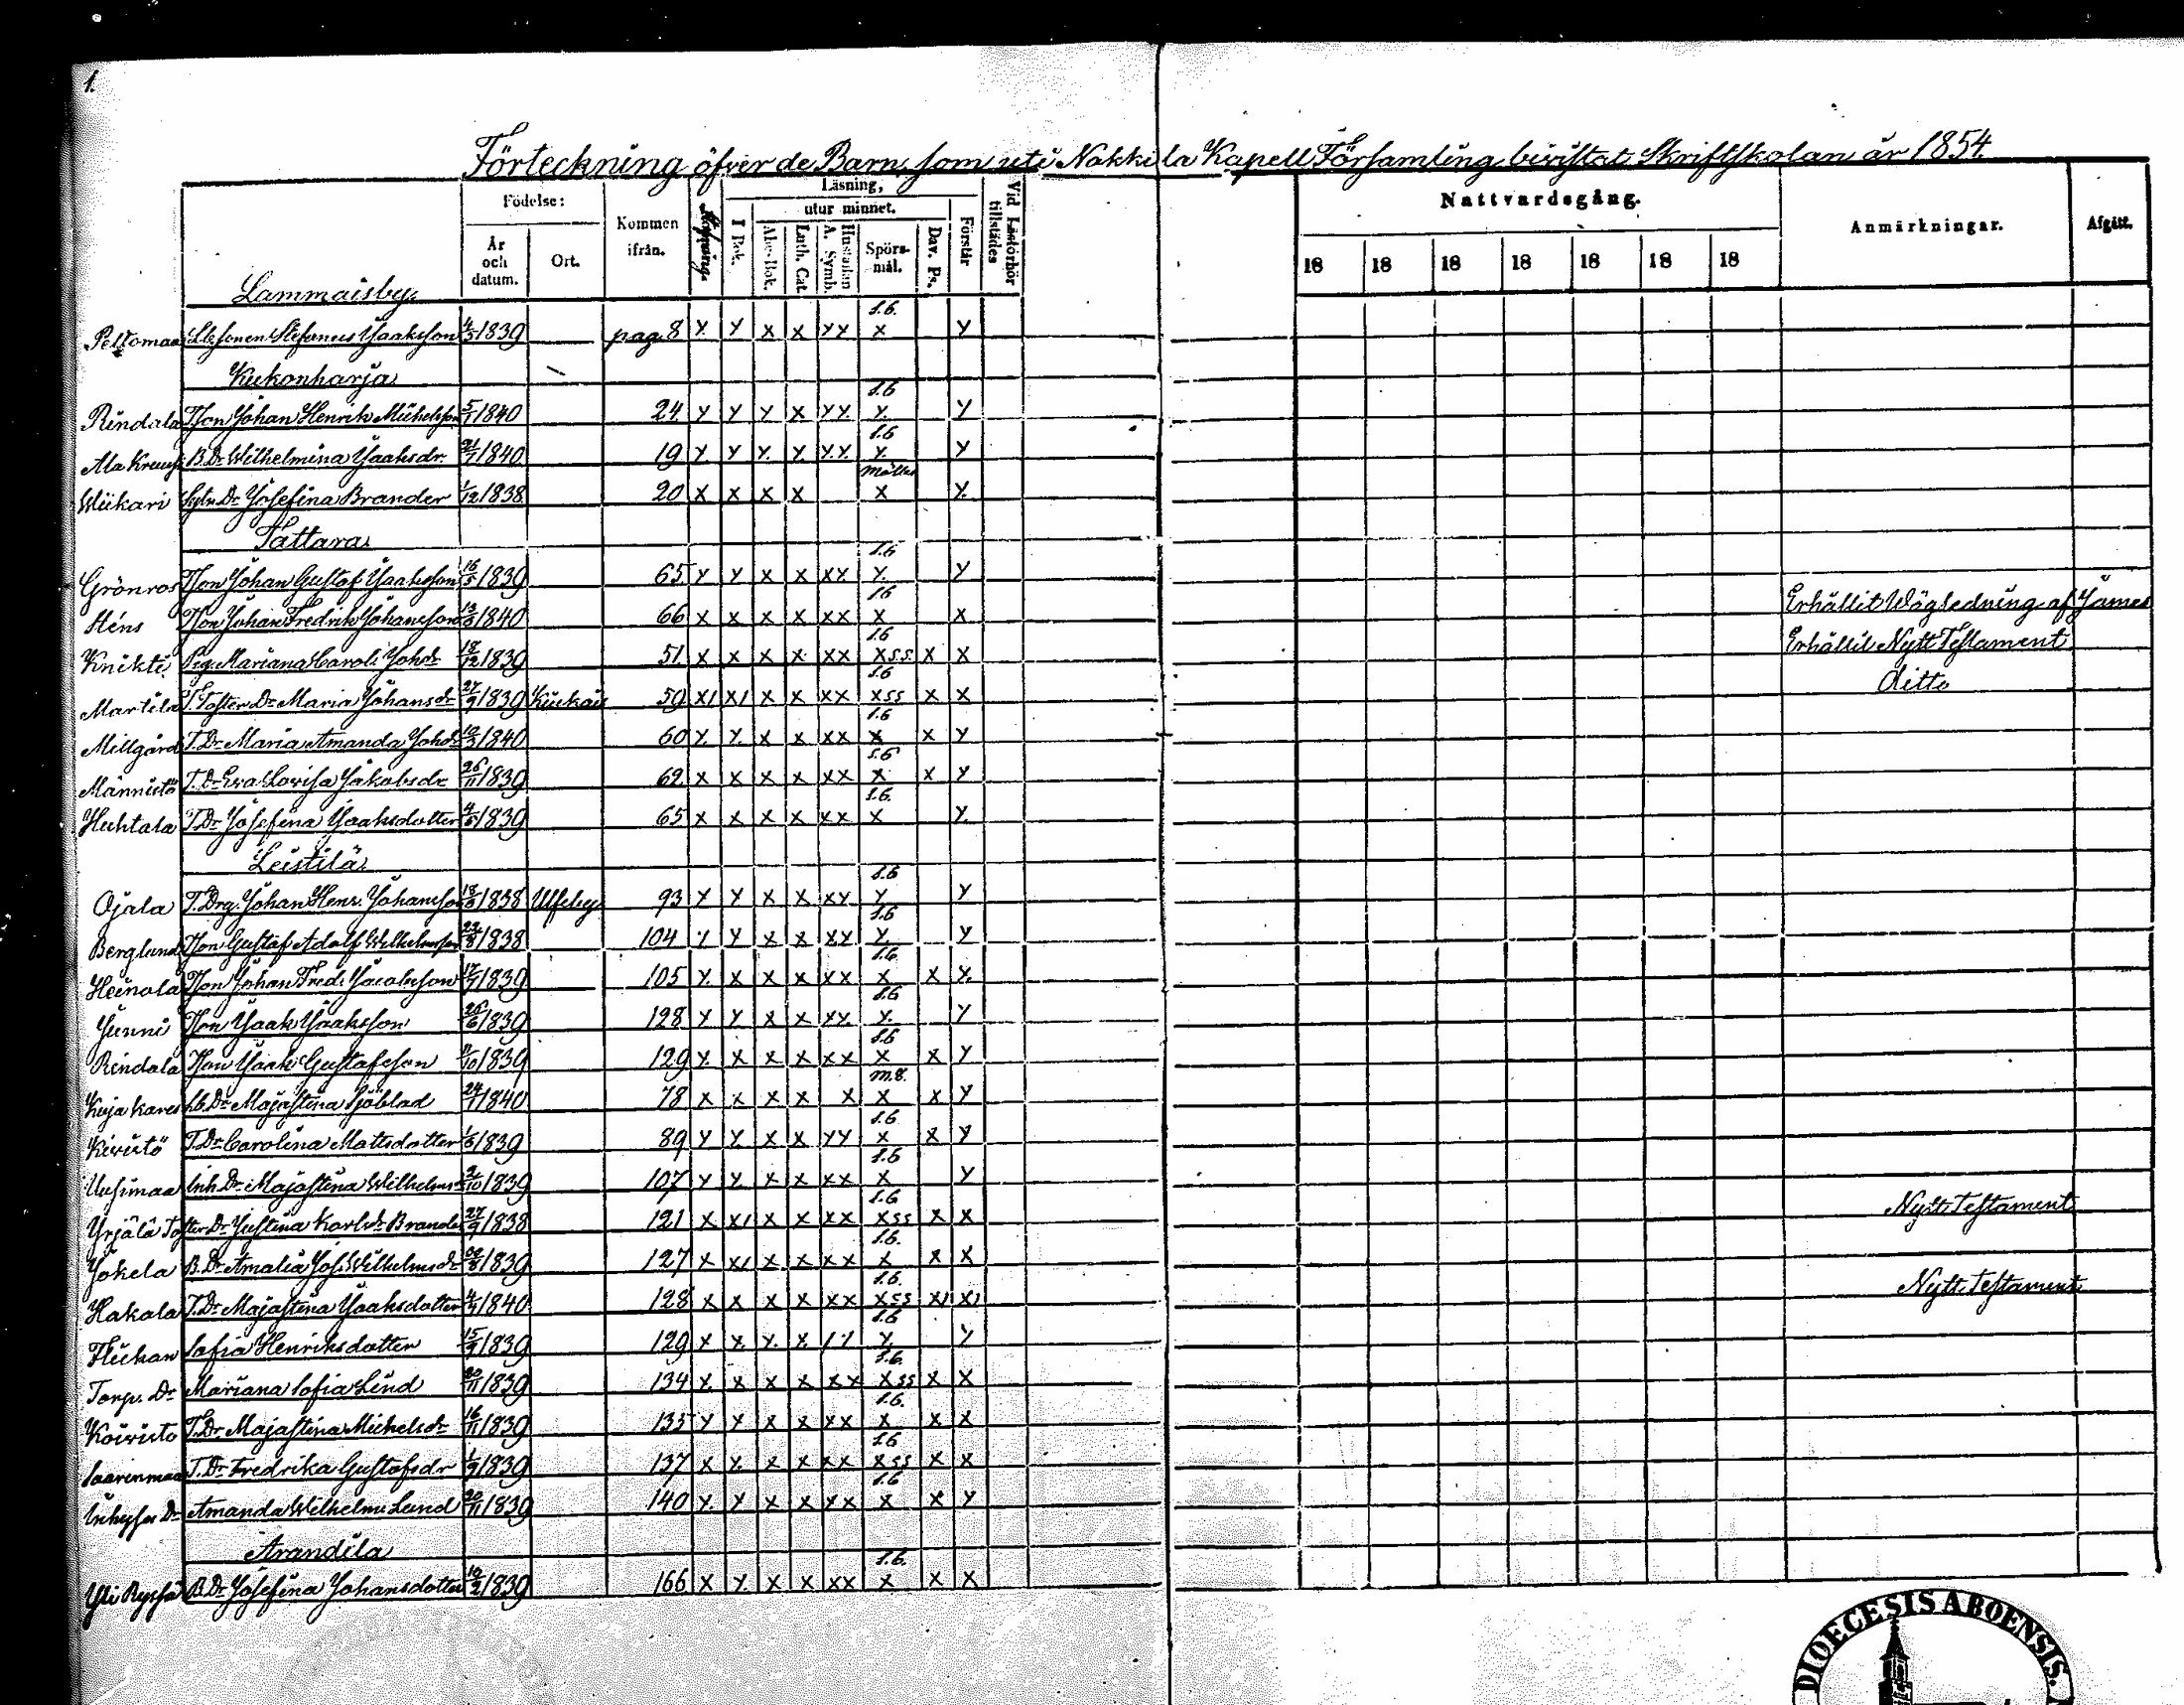 1.
Förteckning öfver de Barn, som uti Nakkila Kapell Församling bivistat Skriftskolan år 1854.
Födelse: Kommen ifrån. Läsning, Vid Läsförhör tillstädes Nattvardsgång. Anmärkningar. Afgått.
År och datum. Ort. I Bok. utur minnet. Förstår
Abc-Bok. Luth. Cat. Hustaflan A. Symb. Spörs-mål. Dav. Ps. 18 18 18 18 18 18 18
Lammaisby.
s.6.
Peltomaa Stefanus Isaksson 4/5 1839 pag. 8 Y. Y x x YY x Y
Kukonharja
s.6
Rindala Tson Johan Henrik Michelsson 5/1 1840 24 Y Y Y x YY. Y. Y
s.6
Ala Kruusi B. Dr Wilhelmina Isaksdr. 21/7 1840 19 Y. Y Y. Y. YY Y. Y
Möller
Wiikari Dr Josefina Brander 1/12 1838 20 x x x x x Y.
Tattara
s.6
Grönros Tson Johan Gustaf Isaksson 16/5 1839 65 Y Y x x xY. Y. Y
s.6
Stens Tson Johan Fredrik Johansson 66 x x x x xx x x Erhållit Wägledning af James
s.6
Knikti Pig. Mariana Caroli Johdr 18/12 1839 51 x x x x xx xss. x x Erhållit Nytt Testament
s.6
Martila T. Foster Dr Maria Johansdr 27/9 1839 Kiukais 59 x/ x/ x x xx xss x x ditto
s.6
Millgård T. Dr Maria Amanda Johdr 10/3 1840 60 Y. Y. x x xx x x Y
s.6
Männistö T. Dr Eva Lovisa Jakobsdr 26/11 1839 62 x x x x xx x x Y
s.6.
Huhtala T. Dr Josefina Isaksdotter 1839 65 x x x x xx x Y.
Leistilä
s.6
Ojala T. Drg. Johan Henr. Johansson 1838 Ulfsby 93 Y Y x x xY Y Y
s.6
Berglund Tson Gustaf Adolf Wilhelmsson 23/8 1838 104 Y Y x x xY Y. Y
s.6.
Heinola Tson Johan Fred. Jacobsson 17/7 1839 105 Y. x x x xx x x Y.
s.6
Junni Tson Isaak Isaaksson 26/6 1839 128 Y Y. x x xY. Y. Y
s.6
Rindala Tson Isaak Gustafsson 1839 129 Y. x x x xx x x Y
m.8.
Kujakares Dr Majastina Sjöblad 24/1 1840 78 x x x x x x x Y
s.6
Kivistö T. Dr Carolina Mattsdotter 1839 89 Y Y. x x YY x x Y
s.6
Uusimaa Inh. Dr Majastina Wilhelmsdr 2/10 1839 107 Y Y. x x xx x Y
s.6
Yrjälä Foster Dr Justina Karlsdr Brander 27/9 1838 121 x x/ x x xx xss x x Nytt Testament
s.6.
Jokela B. Dr Amalia Jos. Wilhelmsdr 1839 127 x x/ x x xx x x x
s.6.
Hakala T. Dr Majastina Isaaksdotter 1840 128 x x x x xx xss x/ x/ Nytt Testament
s.6
Flickan Sofia Henriksdotter 15/9 1839 129 x x. Y. x // Y. Y
s.6.
Torp. Dr Mariana Sofia Lind 20/11 1839 134 Y. x x x xx xss x x
s.6.
Koivisto T. Dr Majastina Michelsdr 16/11 1839 135 Y Y. x x xx x x x
s.6
Saarenmaa T. Dr Fredrika Gustafsdr 1/9 1839 137 x Y. x x xx xss x x
s.6
Inhyses Dr Amanda Wilhelmi Lund 20/11 1839 140 Y. Y x x Yx x x Y
Arandila
s.6.
Yli Ryssä B. Dr Josefina Johansdotter 10/2 1839 166 x Y. x x xx x x x
DIOECESIS ABOENSIS.